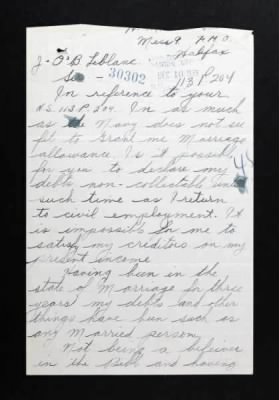 Mess 9 F.M.O.
Halifax
J. O'B Leblanc
Sir - 30302 DEC 10 1939 113 P. 204
In reference to your
N.S. 113 P. 204. In as much
as the Navy does not see
fit to Grant me Marriage
allowance. Is it possible
for you to declare my
debts non-collectable until
such time as I return
to civil employment. It
is impossible for me to
satisfy my creditors on my
present income
Having been in the
state of Marriage for three
years my debts and other
things have been such as
any Married person
Not being a believer
in the Bible and having